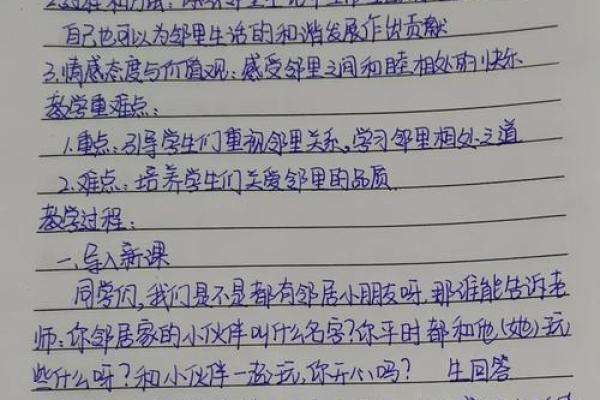 2.过程和方法：
自己也可以为邻里生活的和谐发展作出贡献
3.情感态度与价值观：感受邻里之间和睦相处的快乐
教学重难点：
1.重点：引导学生们重视邻里关系，学习邻里相处之道
2.难点：培养学生们关爱邻里的品质.
教学过程：
一、导入新课
同学们，我们是不是都有邻居小朋友呀，那谁能告诉老
师：你邻居家的小伙伴叫什么名字？你平时都和他（她）玩
些什么呀？和小伙伴一起玩，你开心吗？ 生回答